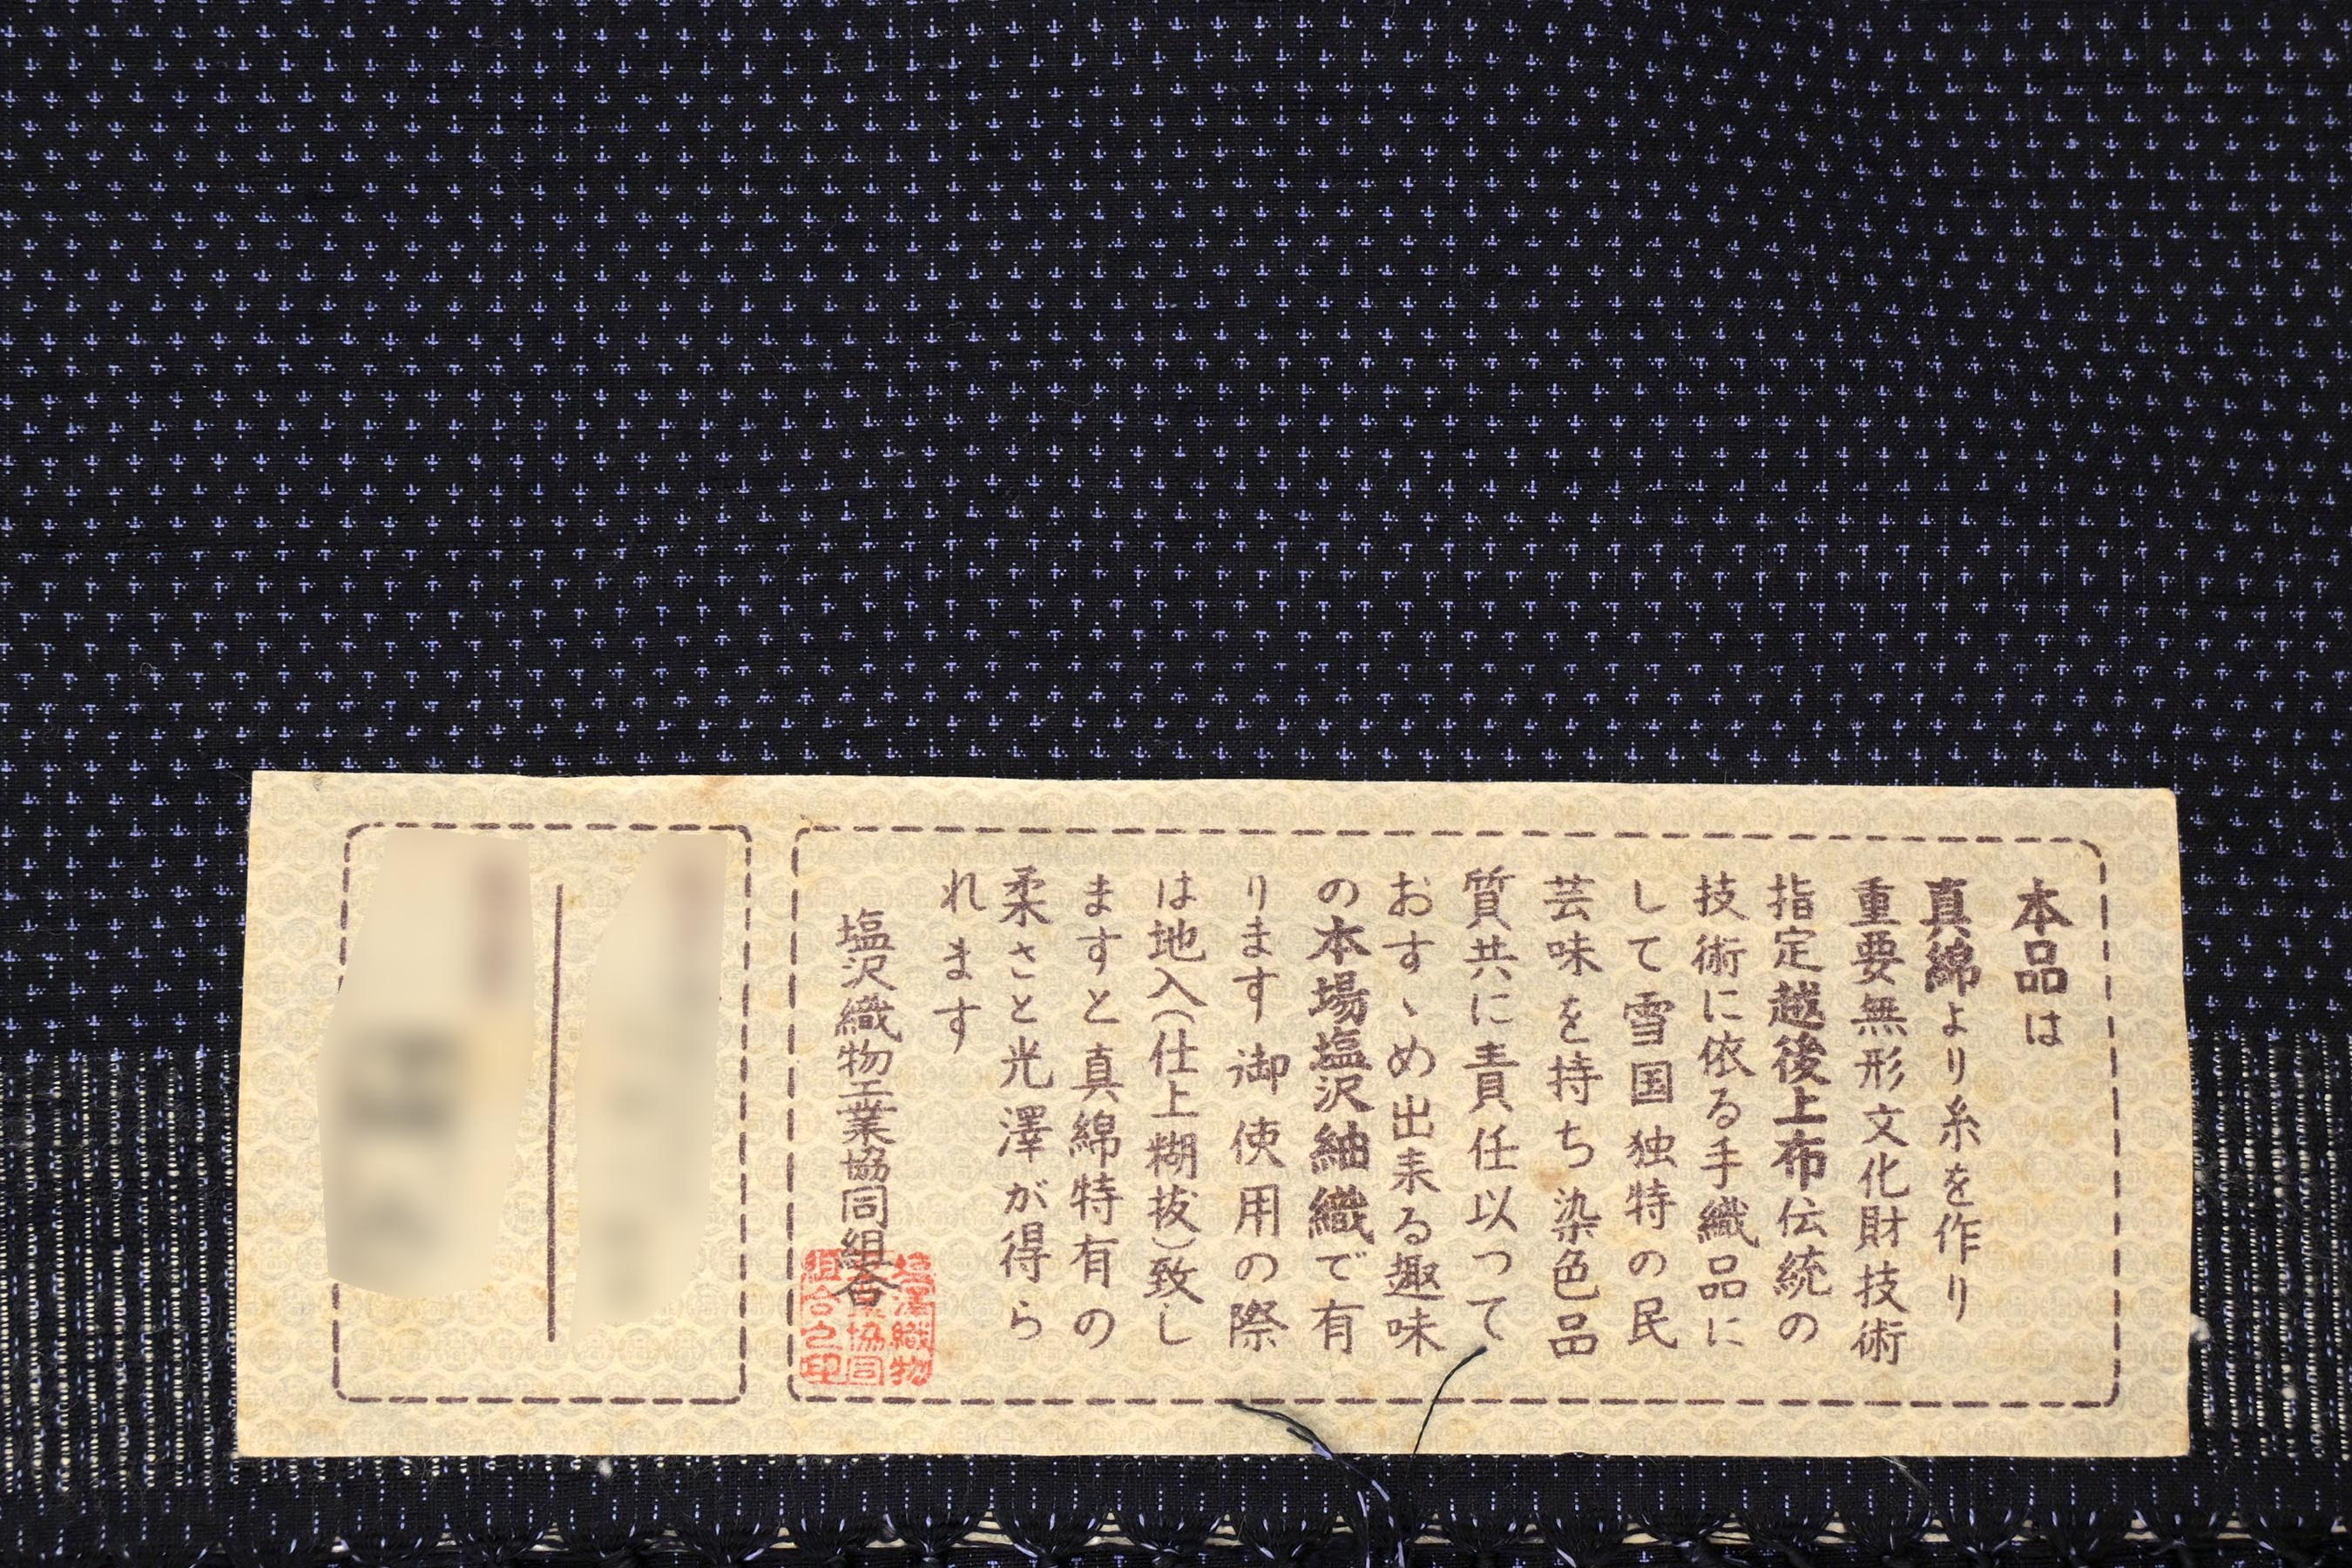 本品は
真綿より糸を作り
重要無形文化財技術
指定越後上布伝統の
技術に依る手織品に
して雪国独特の民
芸味を持ち染色品
質共に責任以って
おすゝめ出来る趣味
の本場塩沢紬織で有
ります御使用の際
は地入(仕上糊抜)致し
ますと真綿特有の
柔さと光澤が得ら
れます
塩沢織物工業協同組合
塩澤織物
業協同
組合之印